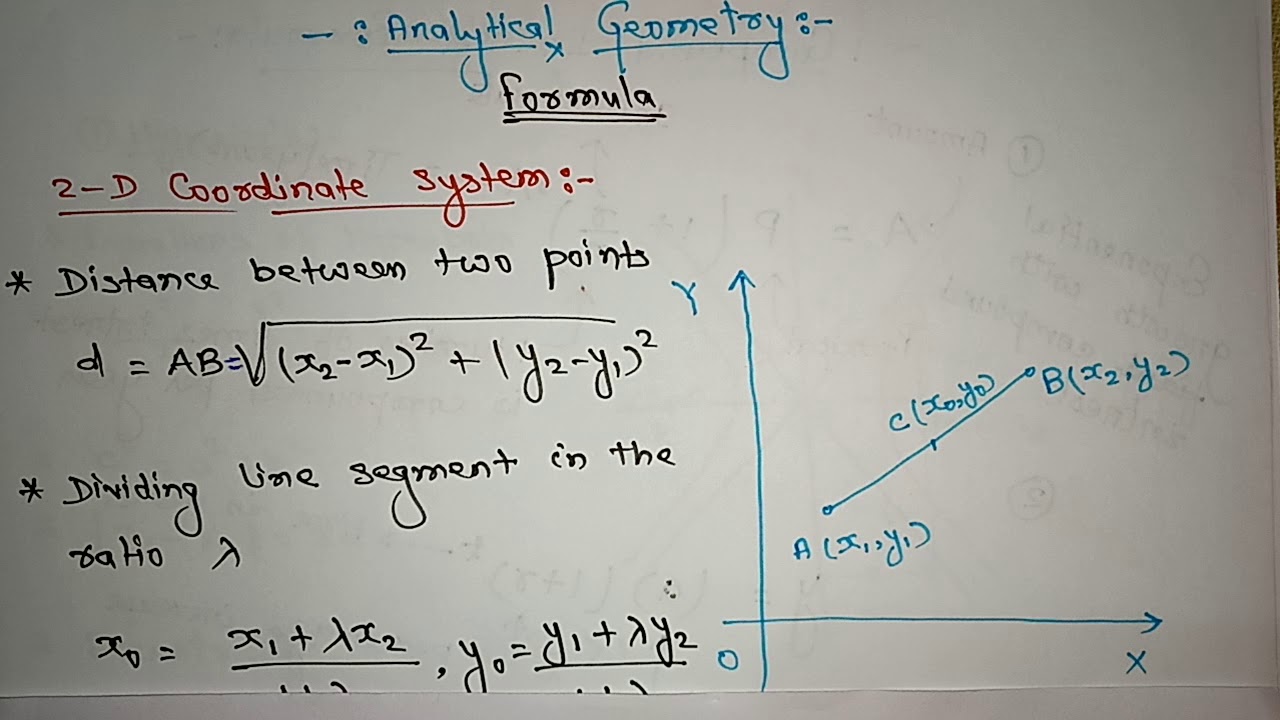 -: Analytical Geometry :-
Formula
2-D Coordinate system:-
* Distance between two points
d = AB=√(x₂-x₁)² + (y₂-y₁)²
* Dividing line segment in the
ratio λ
x₀ = x₁ + λx₂ , y₀ = y₁ + λy₂
Y
B(x₂, y₂)
C(x₀, y₀)
A(x₁, y₁)
O
X